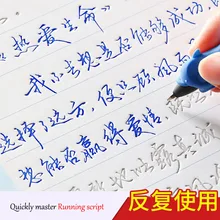 热爱生命
我不去想是否能够成功，
选择了远方，便只顾风雨
想能否赢得爱情
Quickly master Running script
反复使用